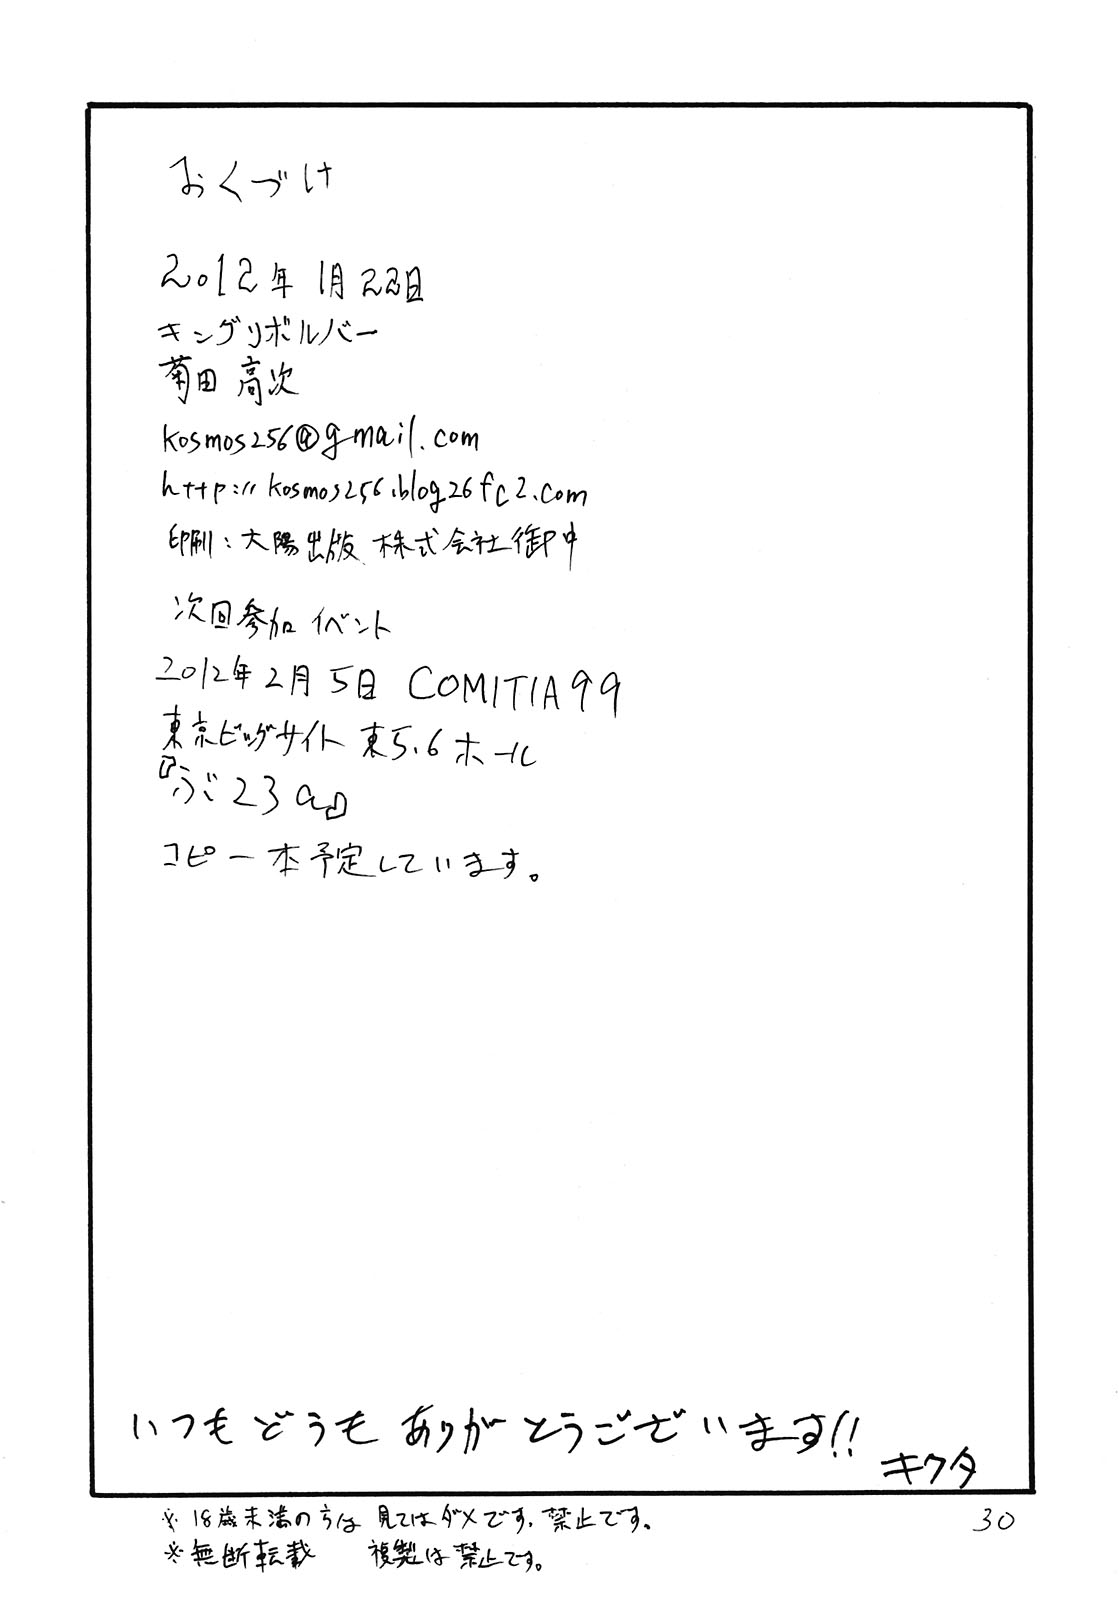 おくづけ
2012年1月22日
キングリボルバー
菊田 高次
kosmos256@gmail.com
http://kosmos256.blog26fc2.com
印刷：大陽出版 株式会社御中
次回参加イベント
2012年2月5日 COMITIA99
東京ビッグサイト 東5.6ホール
『ぶ23a』
コピー本予定しています。
いつもどうもありがとうございます!!
キクタ
※18歳未満の方は見てはダメです、禁止です。
30
※無断転載 複製は禁止です。